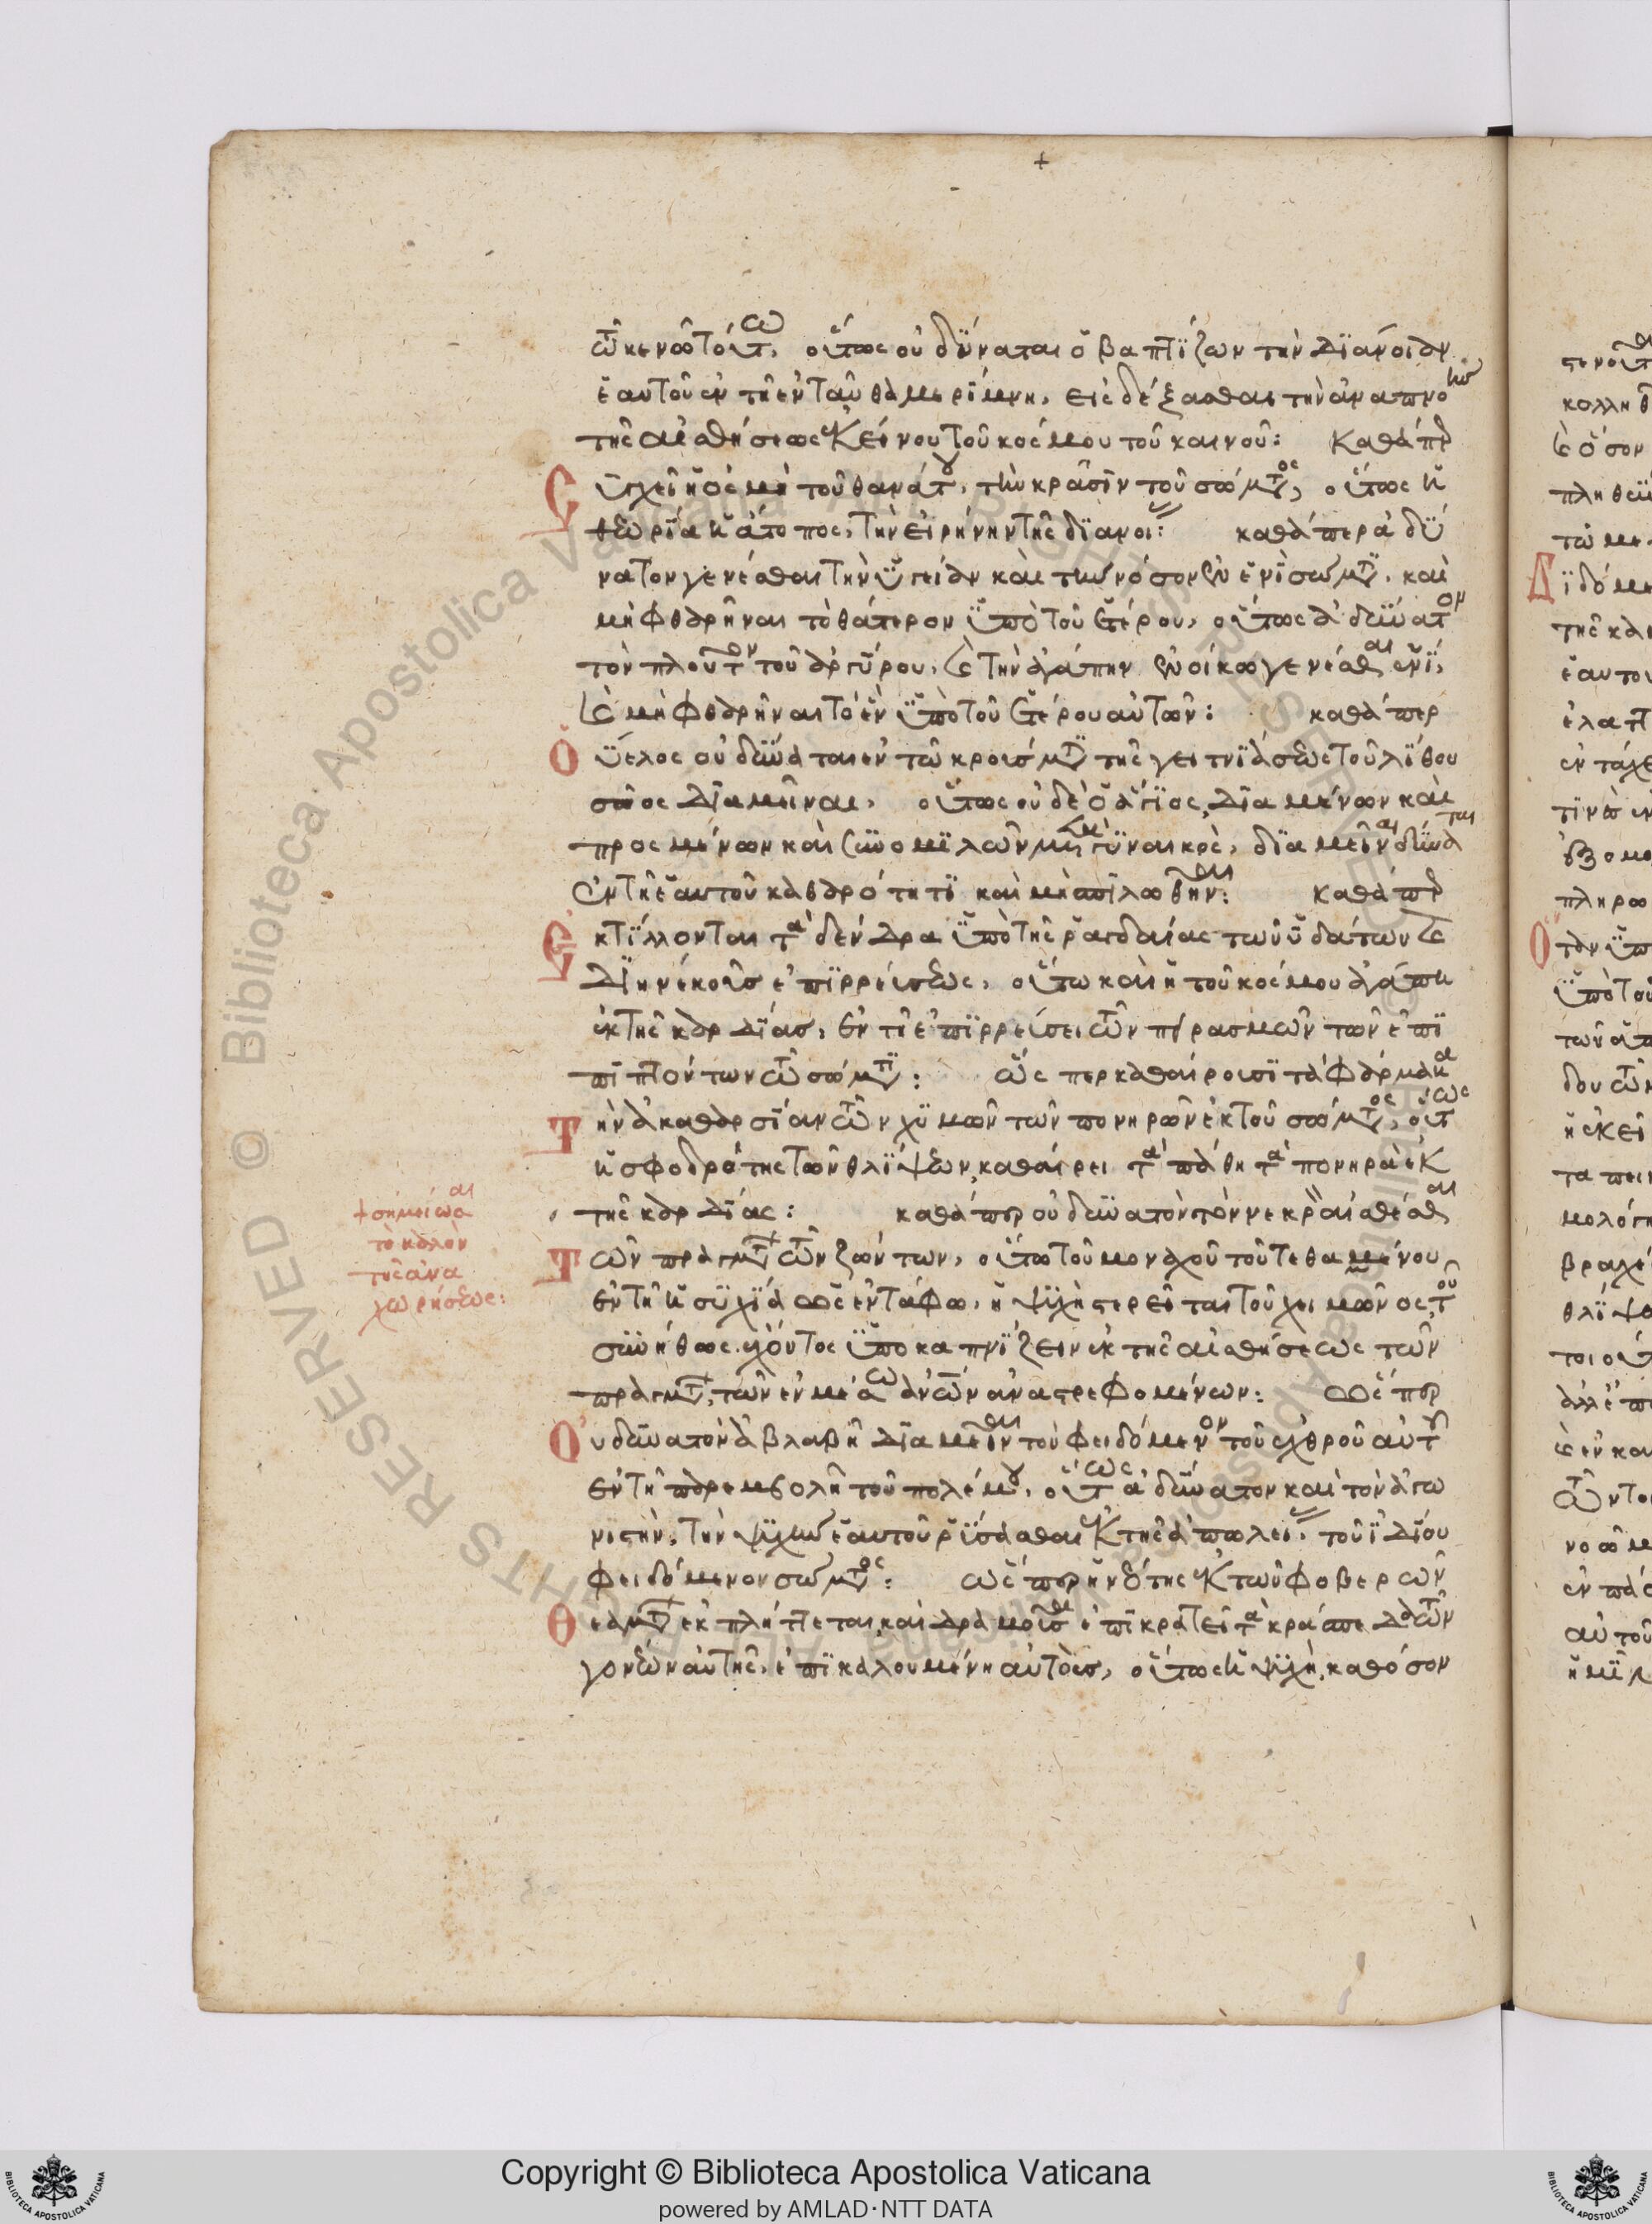 τῶ κενῶ τούτω, οὕτως οὐ δύναται ὁ βαπτίζων τὴν διάνοιαν
ἑαυτοῦ ἐν τῆ ἐνταῦθα μερίμνη, εἰσδέξασθαι τὴν ἀναπνοὴν
τῆς αἰσθήσεως ἐκείνου τοῦ κόσμου τοῦ καινοῦ: Καθάπερ
συγχεῖ ἡ ὀσμὴ τοῦ θανάτου, τὴν κρᾶσιν τοῦ σώματος, οὕτως ἡ
θεωρία ἡ ἄτοπος, τὴν εἰρήνην τῆς διανοίας: καθάπερ ἀδύ
νατον γενέσθαι τὴν ὑγείαν καὶ τὴν νόσον ἐν ἑνὶ σώματι, καὶ
μὴ φθαρῆναι τὸ θάτερον ὑπὸ τοῦ ἑτέρου, οὕτως ἀδύνατον
τὸν πλοῦτον τοῦ ἀργύρου, καὶ τὴν ἀγάπην ἐν οἴκω γενέσθαι ἑνὶ,
καὶ μὴ φθαρῆναι τὸ ἓν ὑπὸ τοῦ ἑτέρου αὐτῶν: καθάπερ
Ὁ ὕελος οὐ δύναται ἐν τῶ κρούσματι τῆς γειτνιάσεως τοῦ λίθου
σῶος διαμεῖναι, οὕτως οὐδὲ ὁ ἅγιος, διαμένων καὶ
προσμένων καὶ συνομιλῶν μετὰ γυναικὸς, διαμεῖναι δύναται
ἐν τῆ ἑαυτοῦ καθαρότητι καὶ μὴ σπιλωθῆναι: Καθάπερ
Ἐκτίλλονται τὰ δένδρα ὑπὸ τῆς ῥαγδαίας τῶν ὑδάτων καὶ
διηνεκοῦς ἐπιρρεύσεως, οὕτω καὶ ἡ τοῦ κόσμου ἀγάπη
ἐκ τῆς καρδίας, ἐν τῆ ἐπιρρεύσει τῶν πειρασμῶν τῶν ἐπι
πιπτόντων τῶ σώματι: ὥσπερ καθαίρουσι τὰ φάρμακα
Τὴν ἀκαθαρσίαν τῶν χυμῶν τῶν πονηρῶν ἐκ τοῦ σώματος, οὕτως
ἡ σφοδρότης τῶν θλίψεων, καθαίρει τὰ πάθη τὰ πονηρὰ ἐκ
τῆς καρδίας: καθάπερ οὐ δυνατὸν τὸν νεκρὸν αἰσθέσθαι
Τῶν πραγμάτων τῶν ζώντων, οὕτω τοῦ μοναχοῦ τοῦ τεθαμμένου
ἐν τῆ ἡσυχία ὡς ἐν τάφω, ἡ ψυχὴ στερεῖται τοῦ χειμῶνος τοῦ
συνήθως ἔχοντος ὑποκαπνίζειν ἐκ τῆς αἰσθήσεως τῶν
πραγμάτων, τῶν ἐν μέσω ἀνῶν ἀναστρεφομένων: ὥσπερ
Οὐ δυνατὸν ἀβλαβῆ διαμεῖναι τὸν φειδόμενον τοῦ ἐχθροῦ αὐτοῦ
ἐν τῆ παρεμβολῆ τοῦ πολέμου, οὕτως ἀδύνατον καὶ τὸν ἀγω
νιστὴν, τὴν ψυχὴν ἑαυτοῦ ῥύσασθαι ἐκ τῆς ἀπωλείας, τοῦ ἰδίου
φειδόμενον σώματος: ὥσπερ ἡ νεότης ἐκ τῶν φοβερῶν
Θεαμάτων ἐκπλήττεται, καὶ δραμοῦσα ἐπικρατεῖ τὰ κράσπεδα τῶν
γονέων αὐτῆς, ἐπικαλουμένη αὐτοὺς, οὕτως ἡ ψυχὴ, καθόσον
+ σημείωσαι
τὸ καλὸν
τῆς ἀνα
χωρήσεως:
Biblioteca Apostolica Vaticana
Copyright © Biblioteca Apostolica Vaticana
powered by AMLAD·NTT DATA